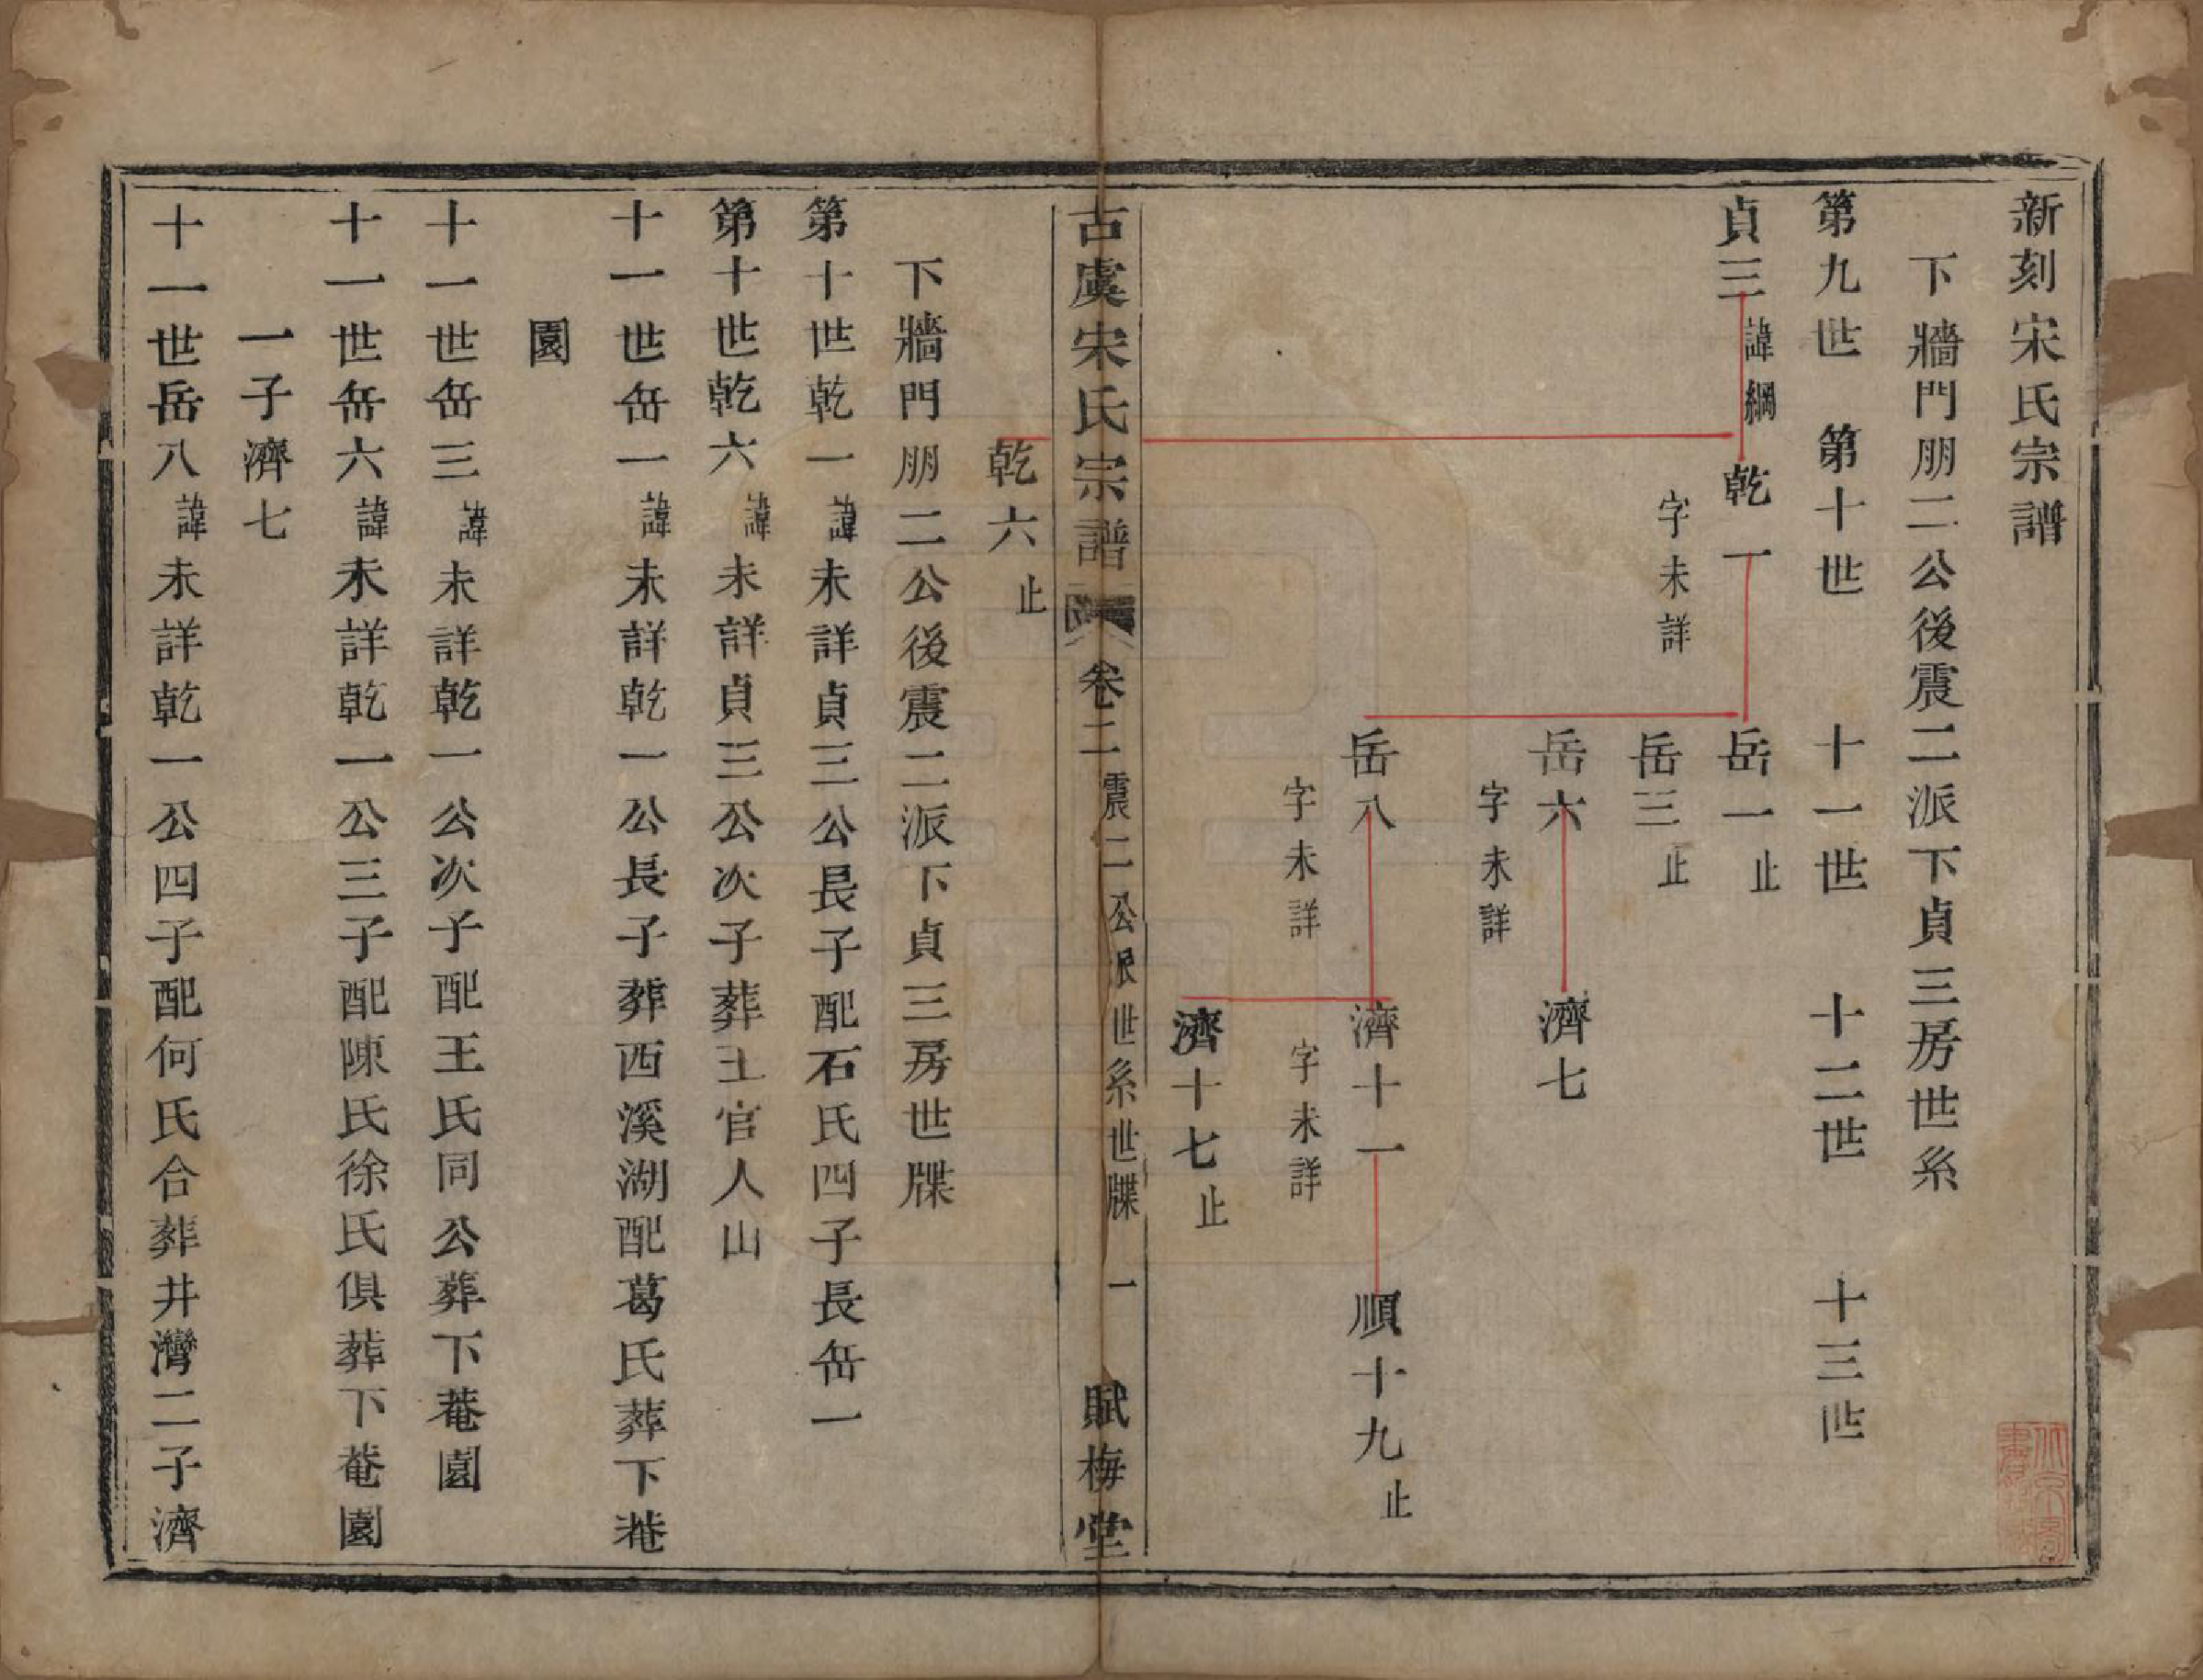 新刻宋氏宗譜
下牆門朋二公後震二派下貞三房世系
第九世　第十世　十一世　十二世　十三世
貞三　諱綱
乾一　字未詳
岳一　止
岳三　止
岳六　字未詳
濟七
岳八　字未詳
濟十一　字未詳
順十九　止
濟十七　止
古虞宋氏宗譜　卷二　震二公派世系世牒　一　賦梅堂
乾六　止
下牆門朋二公後震二派下貞三房世牒
第十世乾一諱未詳貞三公長子配石氏四子長岳一
第十世乾六諱未詳貞三公次子葬王官人山
十一世岳一諱未詳乾一公長子葬西溪湖配葛氏葬下菴
園
十一世岳三諱未詳乾一公次子配王氏同公葬下菴園
十一世岳六諱未詳乾一公三子配陳氏徐氏俱葬下菴園
一子濟七
十一世岳八諱未詳乾一公四子配何氏合葬井灣二子濟